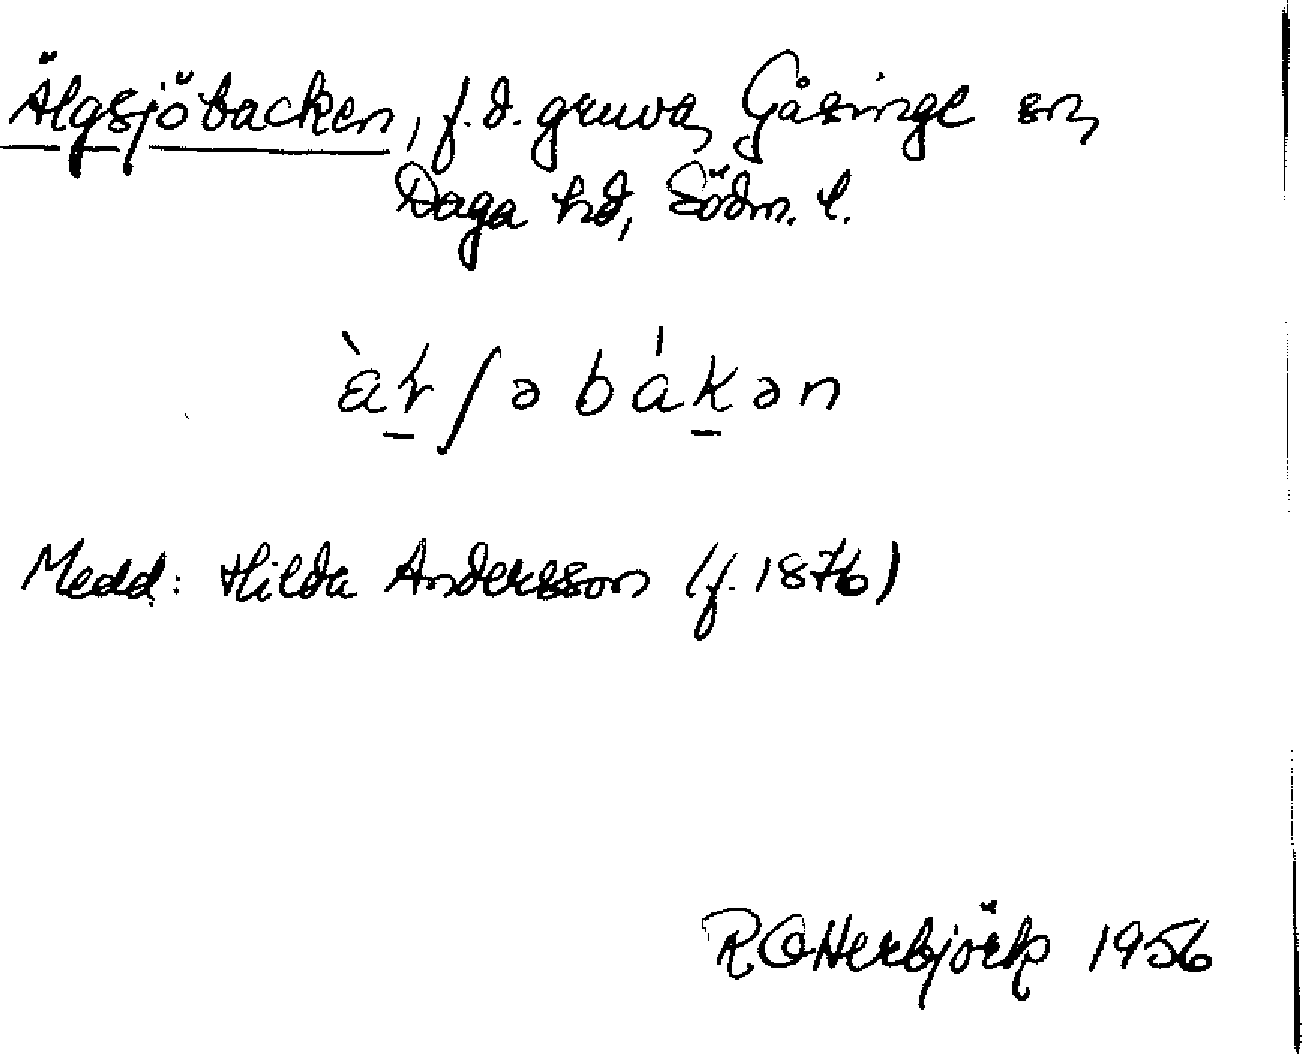 Älgsjöbacken, f.d. gruva, Gåsinge sn,
Daga hd, Södm. l.
àƚʃəbákən
Medd: Hilda Andersson (f. 1876)
R O Herbjörk 1956